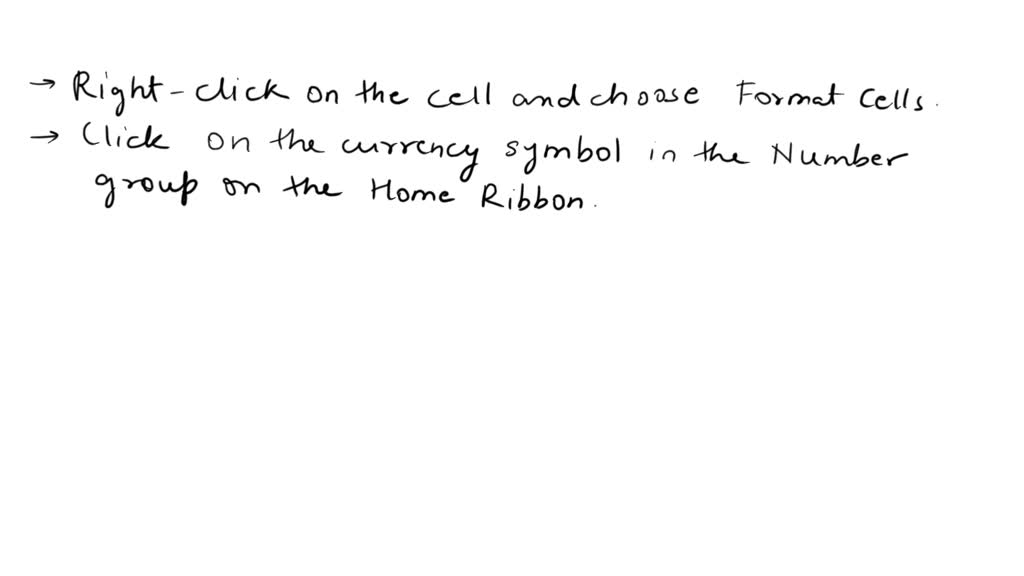 → Right-click on the cell and choose Format Cells.
→ Click on the currency symbol in the Number
group on the Home Ribbon.